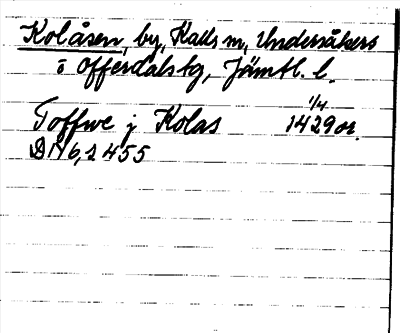 Kolåsen, by, Kalls sn, Undersåkers
o Offerdals tg, Jämtl. l.
1/4
Toffwe j Kolas 1429 or.
DN 6,2 455